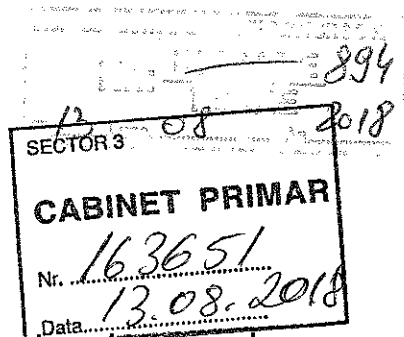 894
13 08 2018
SECTOR 3
CABINET PRIMAR
Nr. 163651
Data 13.08.2018